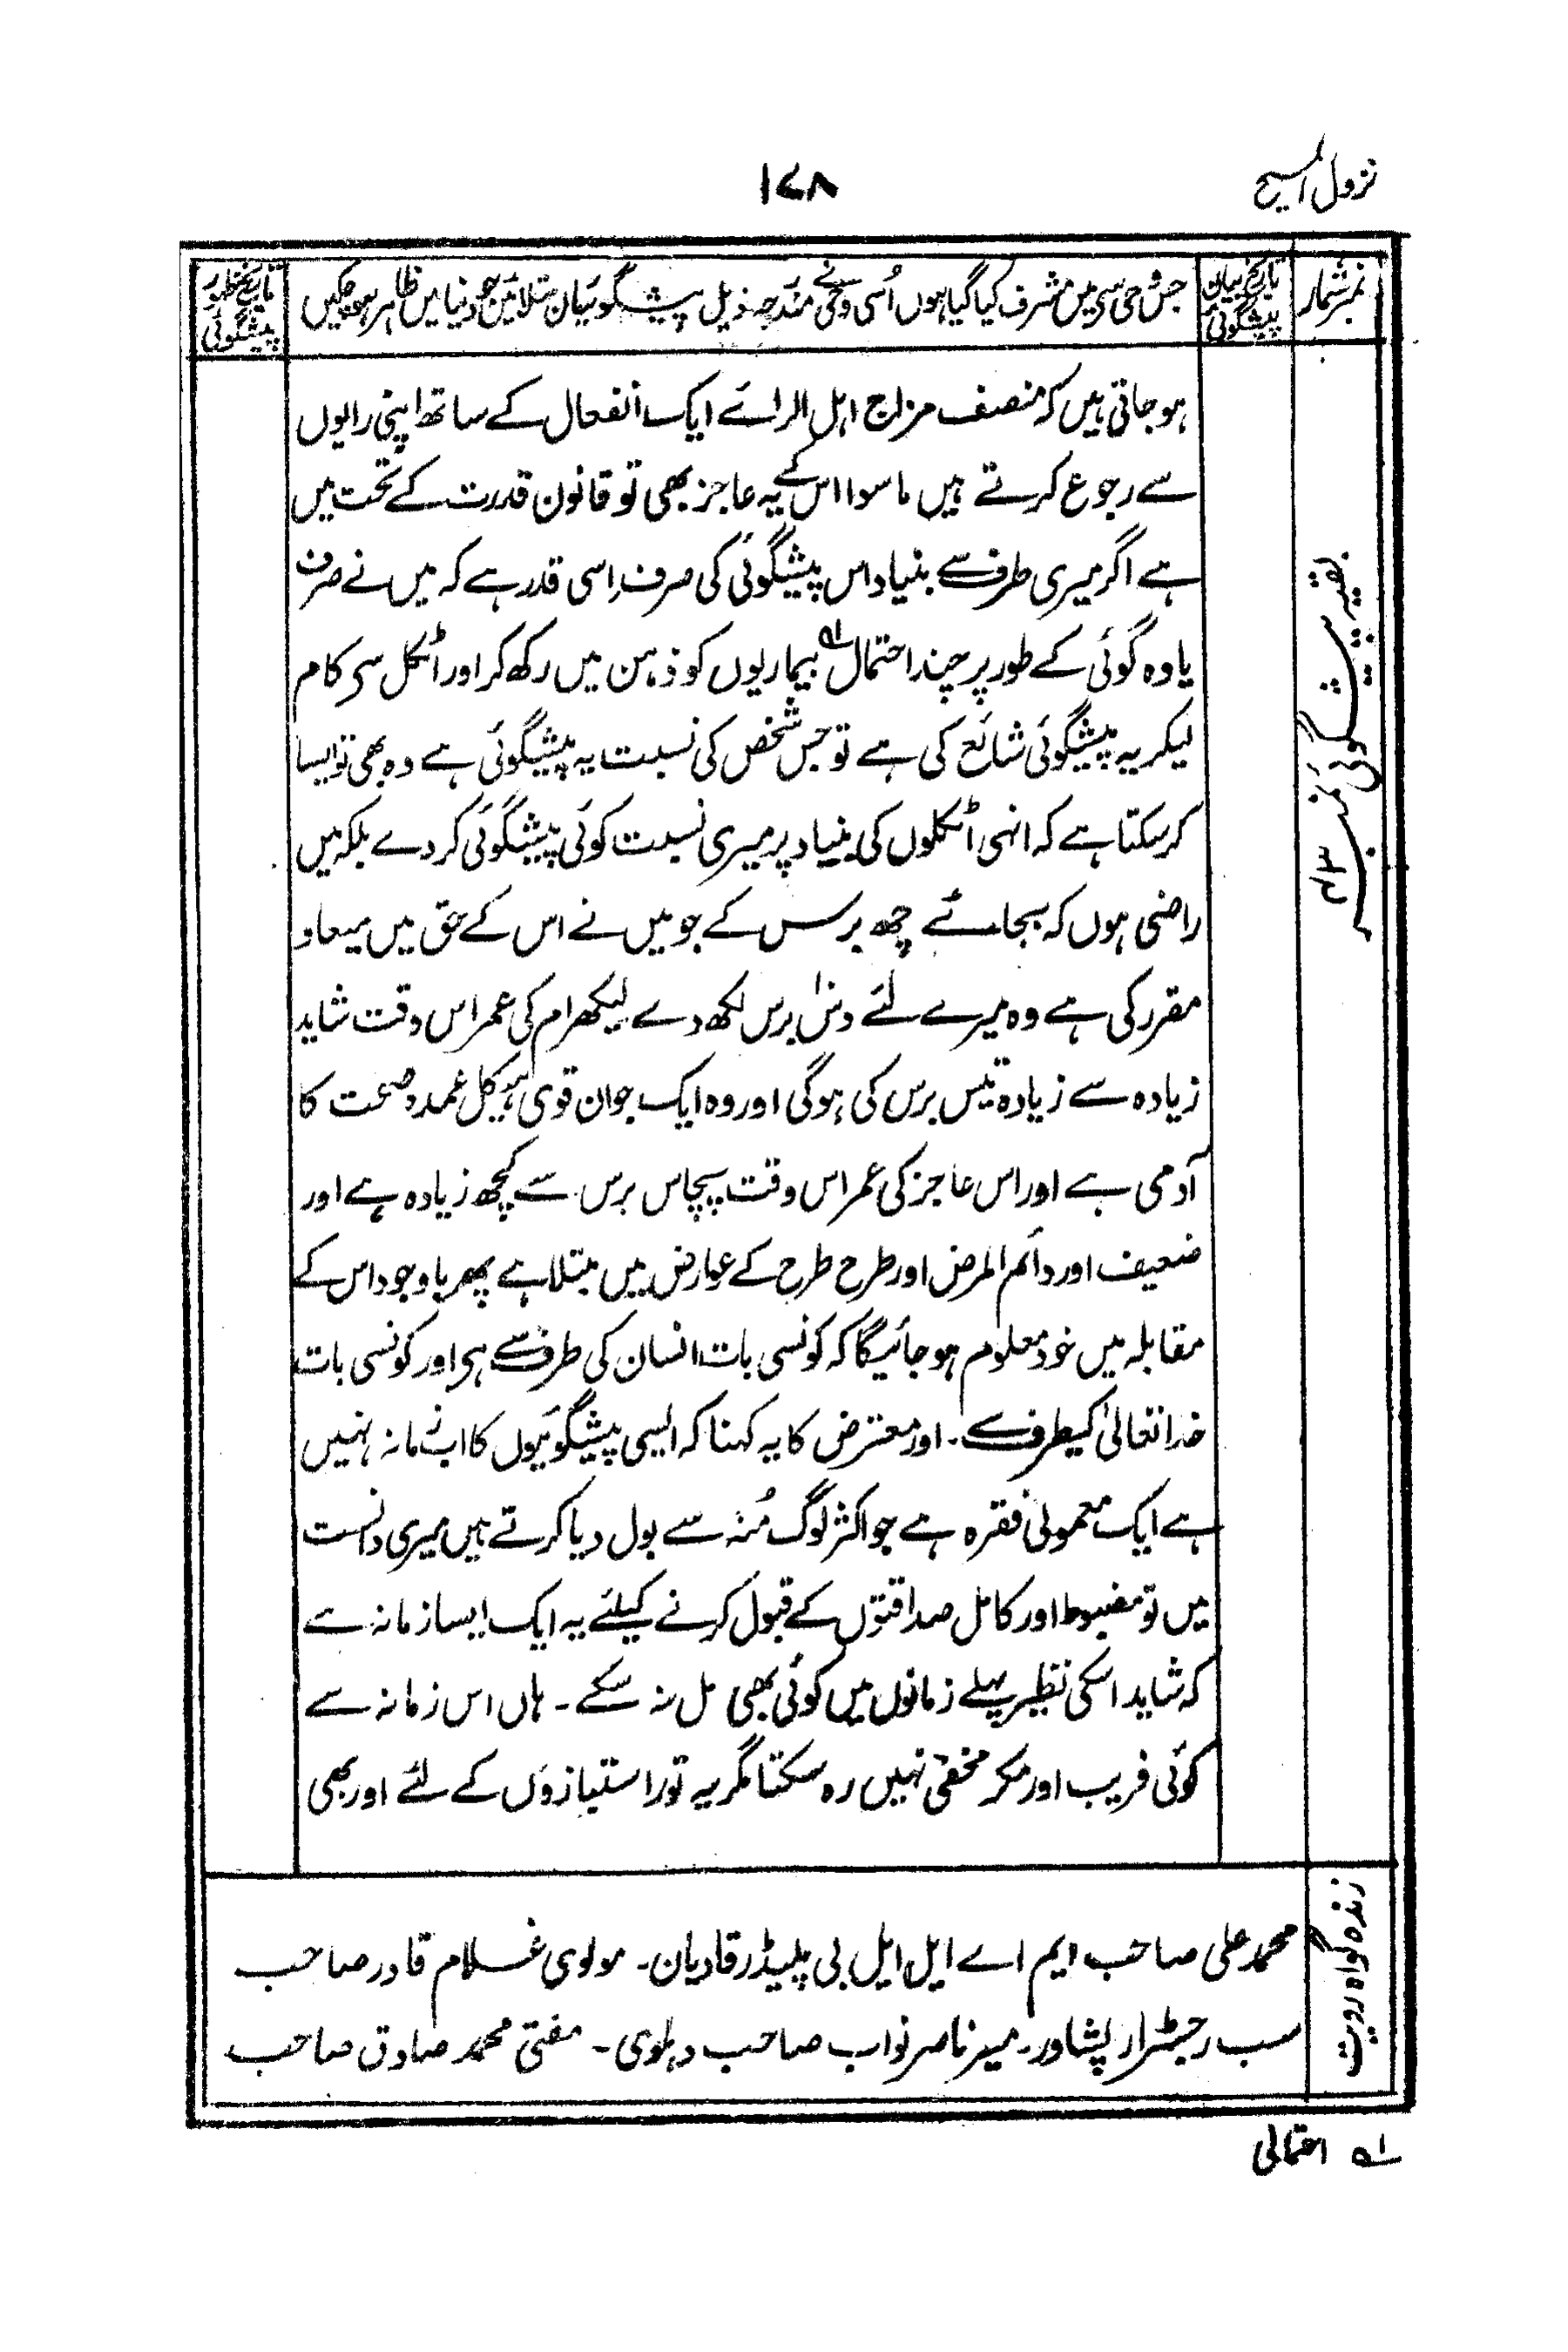 نزول المسیح
۱۷۸
نمبر شمار
تاریخ بیان پیشگوئی
جس وحی سے میں مشرف کیا گیا ہوں اُسی وحی نے مندرجہ ذیل پیشگوئیاں بتلائیں جو دنیا میں ظاہر ہو چکیں
تاریخ ظہور پیشگوئی
ہو جاتی ہیں کہ منصف مزاج اہل الرائے ایک انفعال کے ساتھ اپنی رایوں
سے رجوع کرتے ہیں ماسوا اس کے یہ عاجز بھی تو قانون قدرت کے تحت میں
ہے اگر میری طرف سے بنیاد اس پیشگوئی کی صرف اسی قدر ہے کہ میں نے صرف
یاوہ گوئی کے طور پر چند احتمال ۱؎ بیماریوں کو ذہن میں رکھ کر اور اٹکل سے کام
لیکر یہ پیشگوئی شائع کی ہے تو جس شخص کی نسبت یہ پیشگوئی ہے وہ بھی تو ایسا
کر سکتا ہے کہ انہی اٹکلوں کی بنیاد پر میری نسبت کوئی پیشگوئی کر دے بلکہ میں
راضی ہوں کہ بجائے چھ برس کے جو میں نے اس کے حق میں میعاد
مقرر کی ہے وہ میرے لئے دس۱۰ برس لکھ دے لیکھرام کی عمر اس وقت شاید
زیادہ سے زیادہ تیس برس کی ہوگی اور وہ ایک جوان قوی ہیکل عمدہ صحت کا
آدمی ہے اور اس عاجز کی عمر اس وقت پچاس برس سے کچھ زیادہ ہے اور
ضعیف اور دائم المرض اور طرح طرح کے عوارض میں مبتلا ہے پھر باوجود اس کے
مقابلہ میں خود معلوم ہو جائیگا کہ کونسی بات انسان کی طرف سے ہے اور کونسی بات
خدا تعالیٰ کیطرف سے۔ اور معترض کا یہ کہنا کہ ایسی پیشگوئیوں کا اب زمانہ نہیں
ہے ایک معمولی فقرہ ہے جو اکثر لوگ مُنہ سے بول دیا کرتے ہیں میری دانست
میں تو مضبوط اور کامل صداقتوں کے قبول کرنے کیلئے یہ ایک ایسا زمانہ ہے
کہ شاید اسکی نظیر پہلے زمانوں میں کوئی بھی مل نہ سکے۔ ہاں اس زمانہ سے
کوئی فریب اور مکر مخفی نہیں رہ سکتا مگر یہ تو راستبازوں کے لئے اور بھی
بقیہ پیشگوئی نمبر ۴۳
زندہ گواہ رویت
محمد علی صاحب ایم اے ایل ایل بی پلیڈر قادیان۔ مولوی غلام قادر صاحب
سب رجسٹرار پشاور۔ میر ناصر نواب صاحب دہلوی۔ مفتی محمد صادق صاحب
۱؎ احتمالی